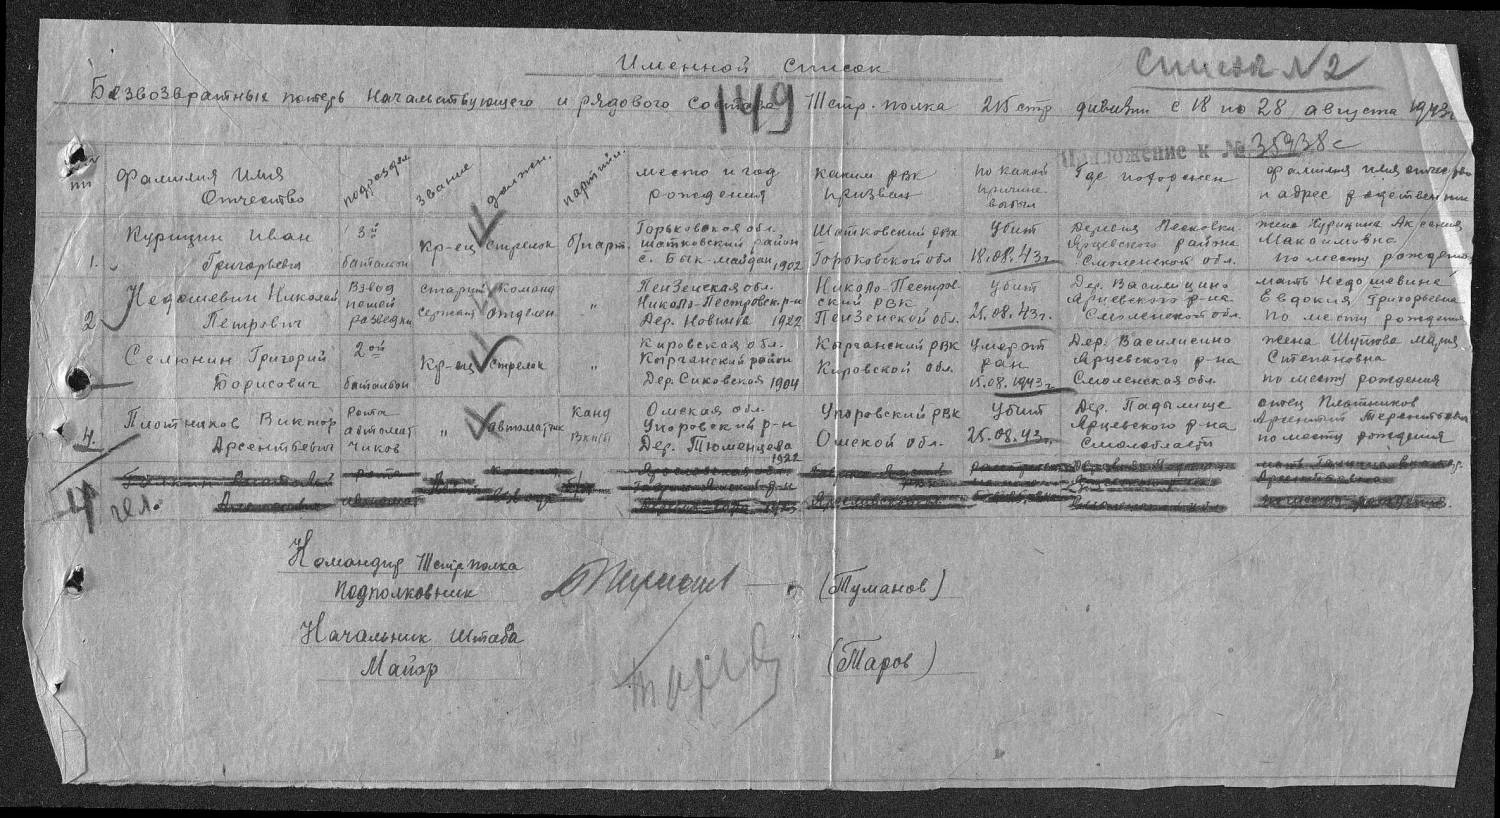 Именной список
Список №2
Безвозвратных потерь Начальствующего и рядового состава 711 стр. полка 215 стр дивизии с 18 по 28 августа 1943г
149
Приложение к № 35938с
№ пп Фамилия Имя Отчество подраздел звание должн. партийн. место и год рождения каким РВК призван по какой причине выбыл Где похоронен Фамилия имя отчество и адрес родственник
1. Курицин Иван Григорьевич 3й батальон Кр-ец стрелок б/парт. Горьковская обл. Шатковский район с. Бык-майдан 1902 Шатковский РВК Горьковской обл убит 18.08.43г Деревня Песковки Ярцевского района Смоленской обл. жена Курицина Аксения Максимовна по месту рождения
2 Недошевин Николай Петрович Взвод пешей разведки старший сержант Команд отделен " Пензенская обл. Николо-Пестровск. р-н Дер. 1922 Николо-Пестровский РВК Пензенской обл. убит 25.08.43г. Дер. Василисино Ярцевского р-на Смоленской обл. мать Недошевина Евдокия Григорьевна по месту рождения
Селюнин Григорий Борисович 2ой батальон Кр-ец стрелок " Кировская обл. Кырчанский район Дер. Сиковской 1904 Кырчанский РВК Кировской обл. Умер от ран 15.08.1943г Дер. Василисино Ярцевского р-на Смоленская обл. жена Мария Степановна по месту рождения
4. Плотников Виктор Арсентьевич Рота автоматчиков " автоматчик Канд ВКП(б) Омская обл. Упоровский р-н Дер. Тюменцева 1922 Упоровский РВК Омской обл. убит 25.08.43г. Дер. Падылище Ярцевского р-на Смолобласти отец Плотников Арсентий Терентьевич по месту рождения
4 чел.
Командир 711 стр полка
Подполковник (Туманов)
Начальник штаба
Майор (Таров)